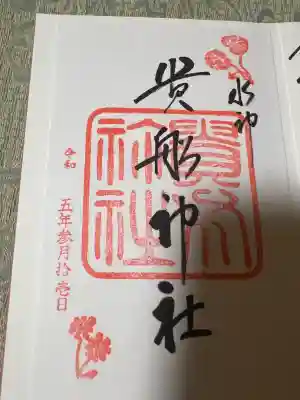 水神
貴船神社
貴船
神社
令和
五年参月拾壱日